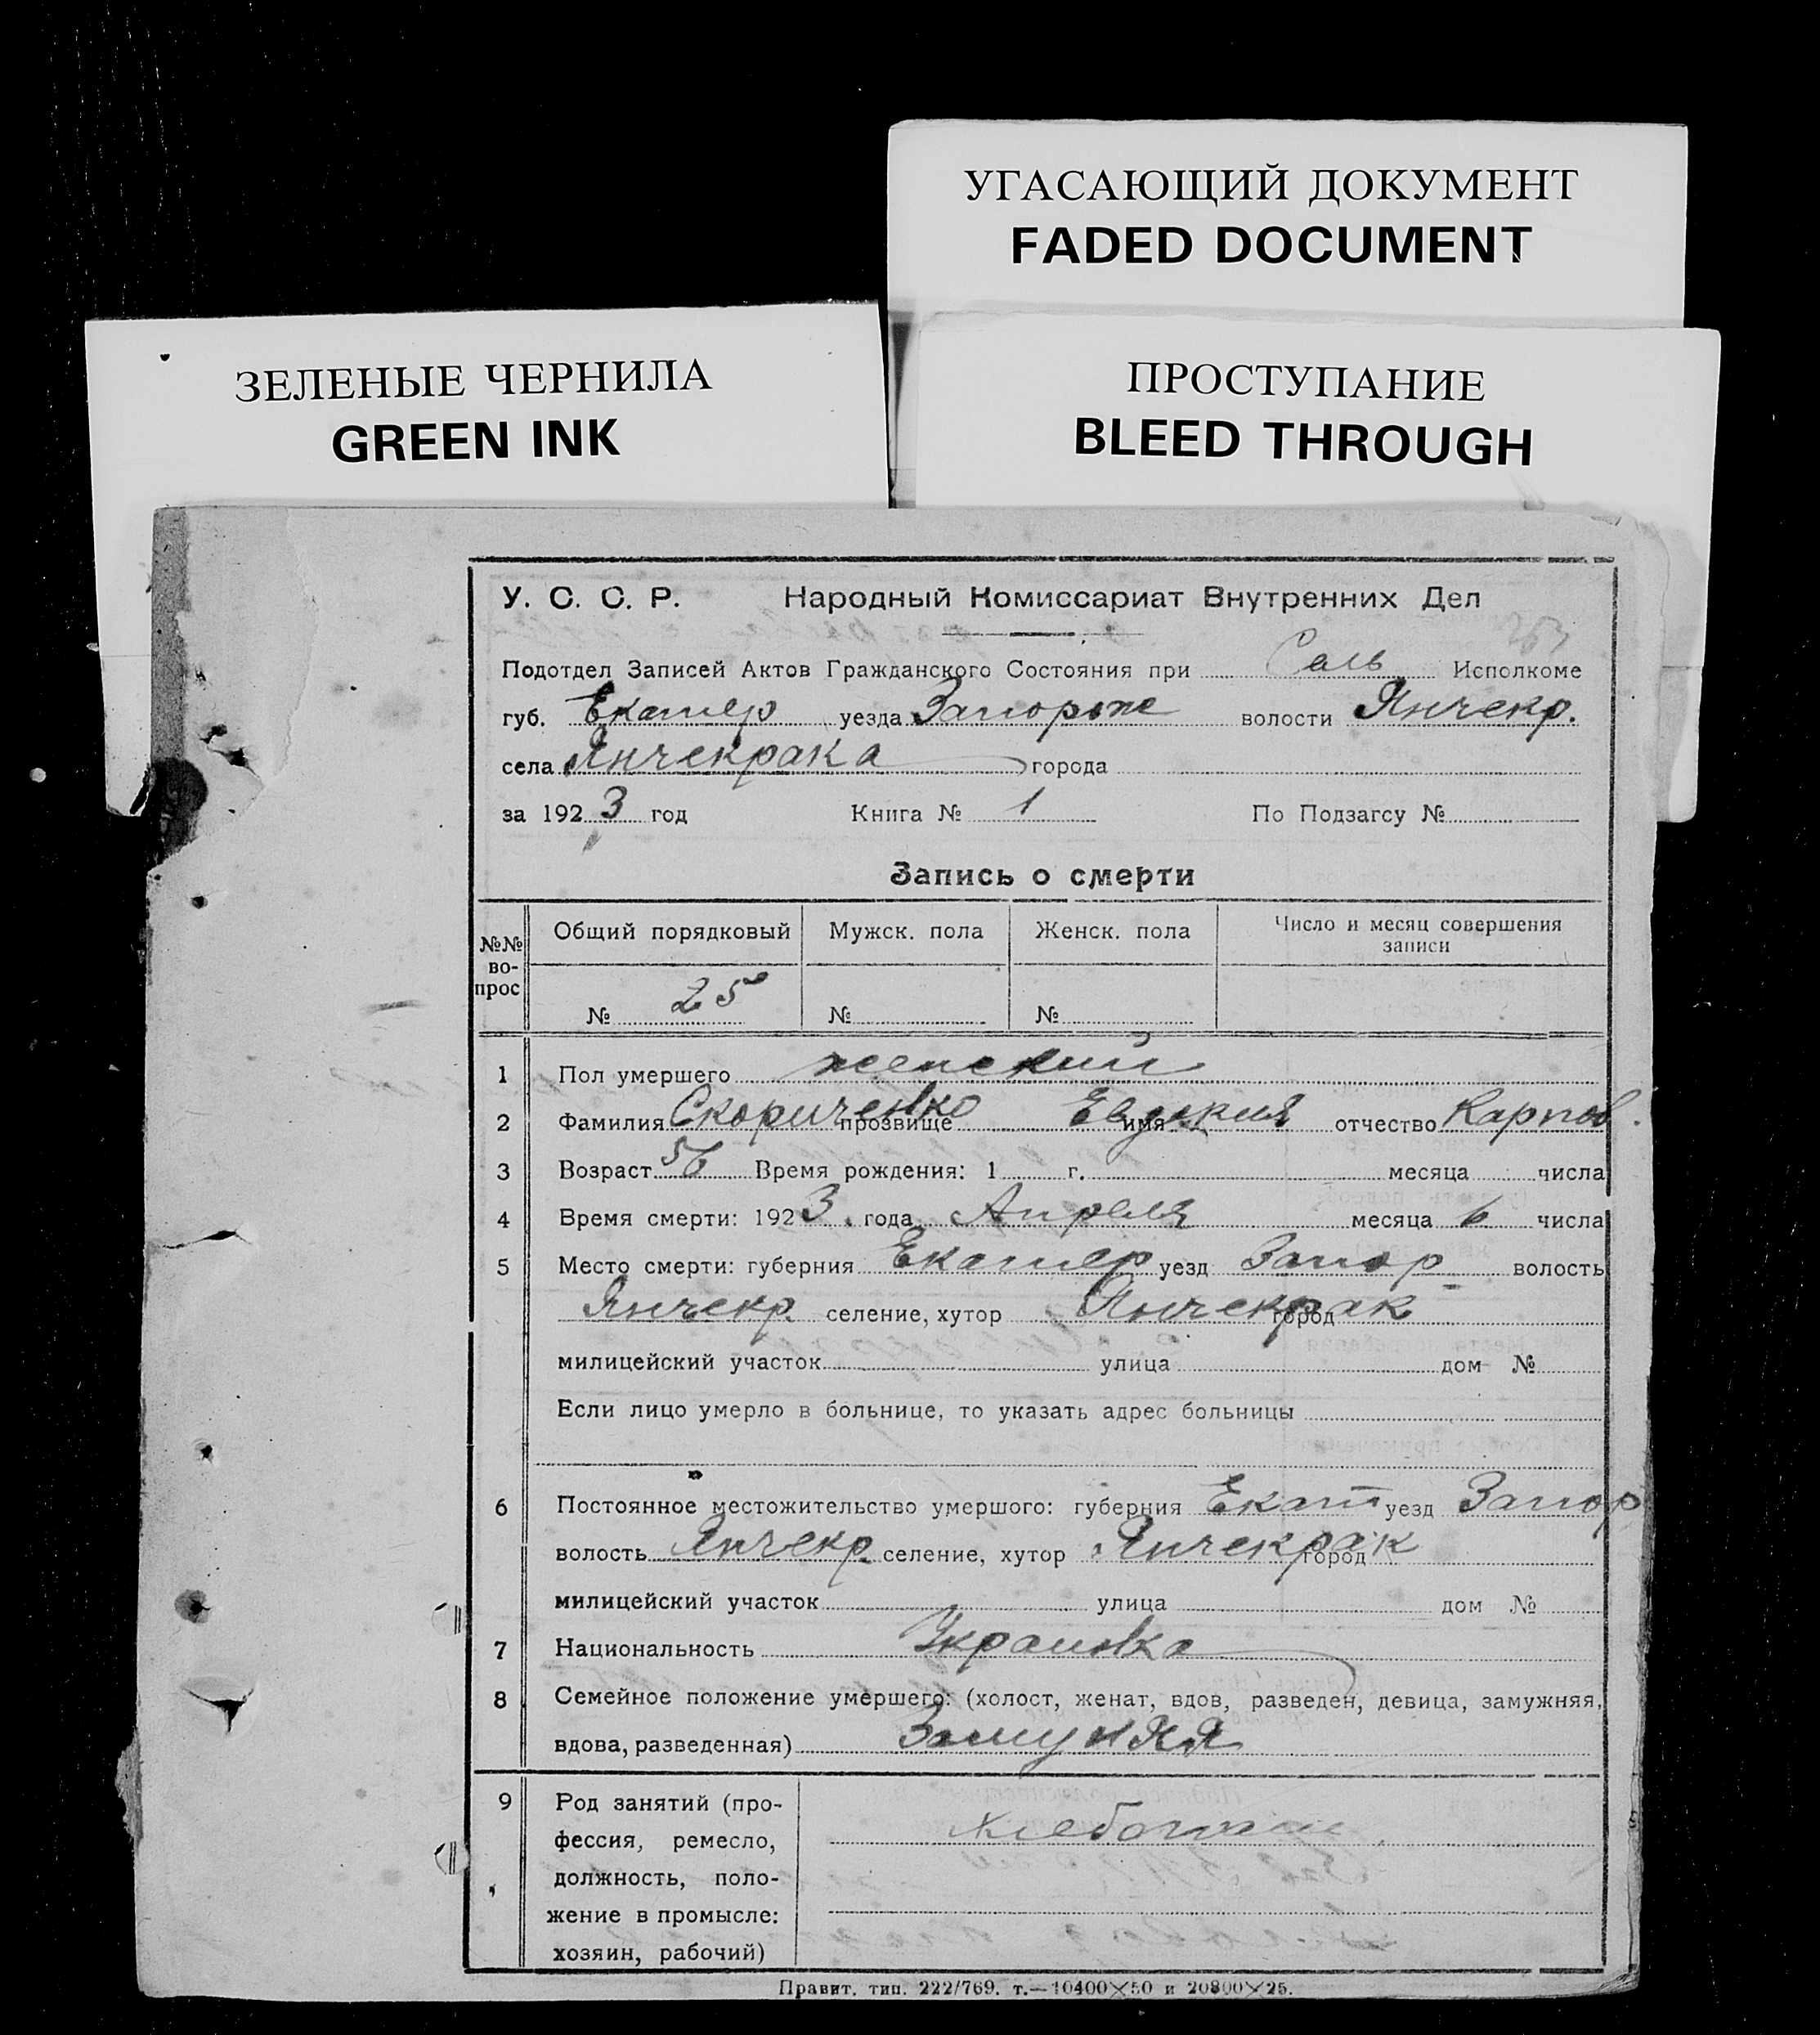 УГАСАЮЩИЙ ДОКУМЕНТ
FADED DOCUMENT
ЗЕЛЕНЫЕ ЧЕРНИЛА
GREEN INK
ПРОСТУПАНИЕ
BLEED THROUGH
У. С. С. Р. Народный Комиссариат Внутренних Дел
Подотдел Записей Актов Гражданского Состояния при Сель Исполкоме
губ. Екатер уезда Запорож волости Янчекр.
села Янчекрака города
за 1923 год Книга № 1 По Подзагсу №
Запись о смерти
№№ во-прос Общий порядковый Мужск. пола Женск. пола Число и месяц совершения записи
№ 25 № №
1 Пол умершего женский
2 Фамилия Скориченко прозвище имя Евдокия отчество Карпов.
3 Возраст 56 Время рождения: 1 г. месяца числа
4 Время смерти: 1923 года Апреля месяца 6 числа
5 Место смерти: губерния Екатер уезд Запор волость
Янчекр. селение, хутор Янчекрак город
милицейский участок улица дом №
Если лицо умерло в больнице, то указать адрес больницы
6 Постоянное местожительство умершого: губерния Екат уезд Запор
волость Янчекр. селение, хутор Янчекрак город
милицейский участок улица дом №
7 Национальность Украинка
8 Семейное положение умершего: (холост, женат, вдов, разведен, девица, замужняя,
вдова, разведенная) Замужняя
9 Род занятий (про-
фессия, ремесло,
должность, поло-
жение в промысле:
хозяин, рабочий)
Правит. тип. 222/769. т.—10400×50 и 20800×25.